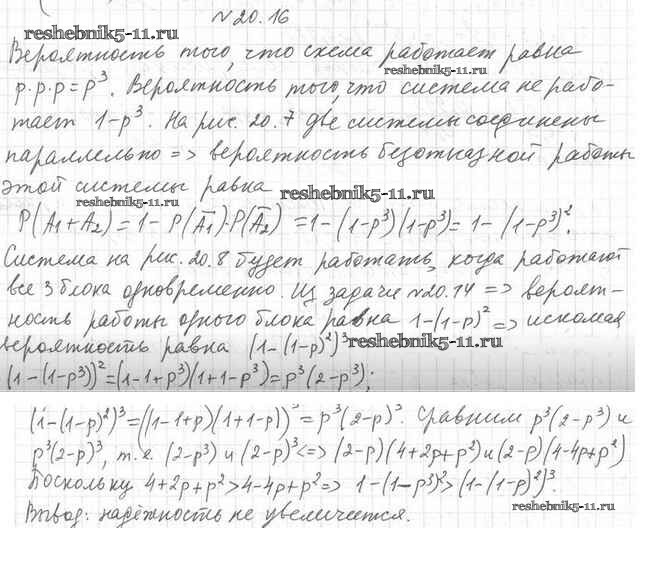 №20.16
reshebnik5-11.ru
Вероятность того, что схема работает равна
reshebnik5-11.ru
p·p·p=p³. Вероятность того, что система не рабо-
тает 1-p³. На рис. 20.7 две системы соединены
параллельно => вероятность безотказной работы
этой системы равна
reshebnik5-11.ru
reshebnik5-11.ru
P(A₁+A₂)=1-P(Ā₁)·P(Ā₂)=1-(1-p³)(1-p³)=1-(1-p³)².
Система на рис. 20.8 будет работать, когда работают
все 3 блока одновременно. Из задачи №20.14 => вероят-
ность работы одного блока равна 1-(1-p)² => искомая
вероятность равна (1-(1-p)²)³
reshebnik5-11.ru
(1-(1-p³))²=(1-1+p³)(1+1-p³)=p³(2-p³);
(1-(1-p)²)³=((1-1+p)(1+1-p))³=p³(2-p)³. Сравним p³(2-p³) и
p³(2-p)³, т.е. (2-p³) и (2-p)³<=>(2-p)(4+2p+p²) и (2-p)(4-4p+p²)
Поскольку 4+2p+p²>4-4p+p²=> 1-(1-p³)²>(1-(1-p)²)³.
Вывод: надёжность не увеличится.
reshebnik5-11.ru